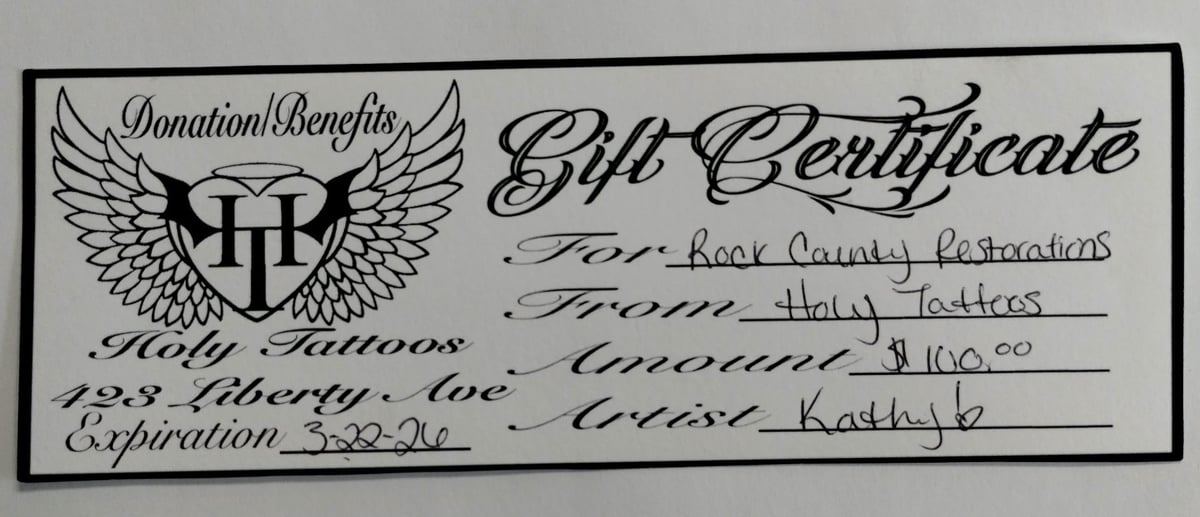 Donation/Benefits
HTH
Holy Tattoos
423 Liberty Ave
Expiration 3-22-26
Gift Certificate
For Rock County Restorations
From Holy Tattoos
Amount $100.00
Artist Kathy b